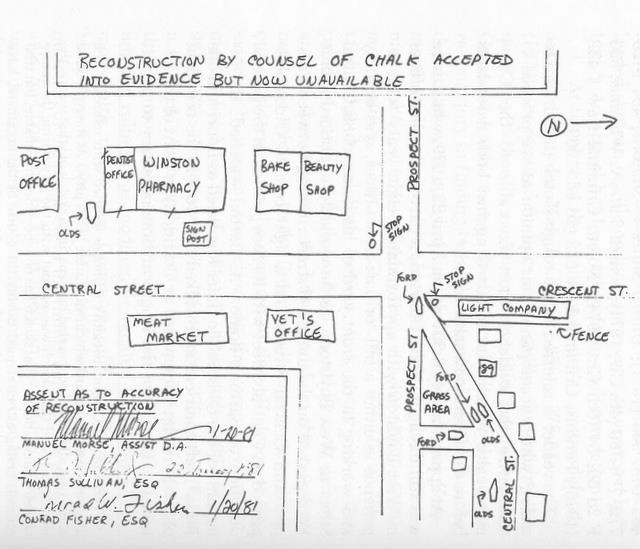 RECONSTRUCTION BY COUNSEL OF CHALK ACCEPTED
INTO EVIDENCE BUT NOW UNAVAILABLE
PROSPECT ST.
N
POST
OFFICE
DENTIST
OFFICE
WINSTON
PHARMACY
BAKE
SHOP
BEAUTY
SHOP
OLDS
SIGN
POST
STOP
SIGN
FORD
STOP
SIGN
CENTRAL STREET
CRESCENT ST.
LIGHT COMPANY
MEAT
MARKET
VET'S
OFFICE
FENCE
PROSPECT ST
89
FORD
GRASS
AREA
FORD
OLDS
OLDS
CENTRAL ST.
ASSENT AS TO ACCURACY
OF RECONSTRUCTION
Manuel Morse 1-20-81
MANUEL MORSE, ASSIST D.A.
THOMAS SULLIVAN, ESQ
Conrad W. Fisher 1/20/81
CONRAD FISHER, ESQ